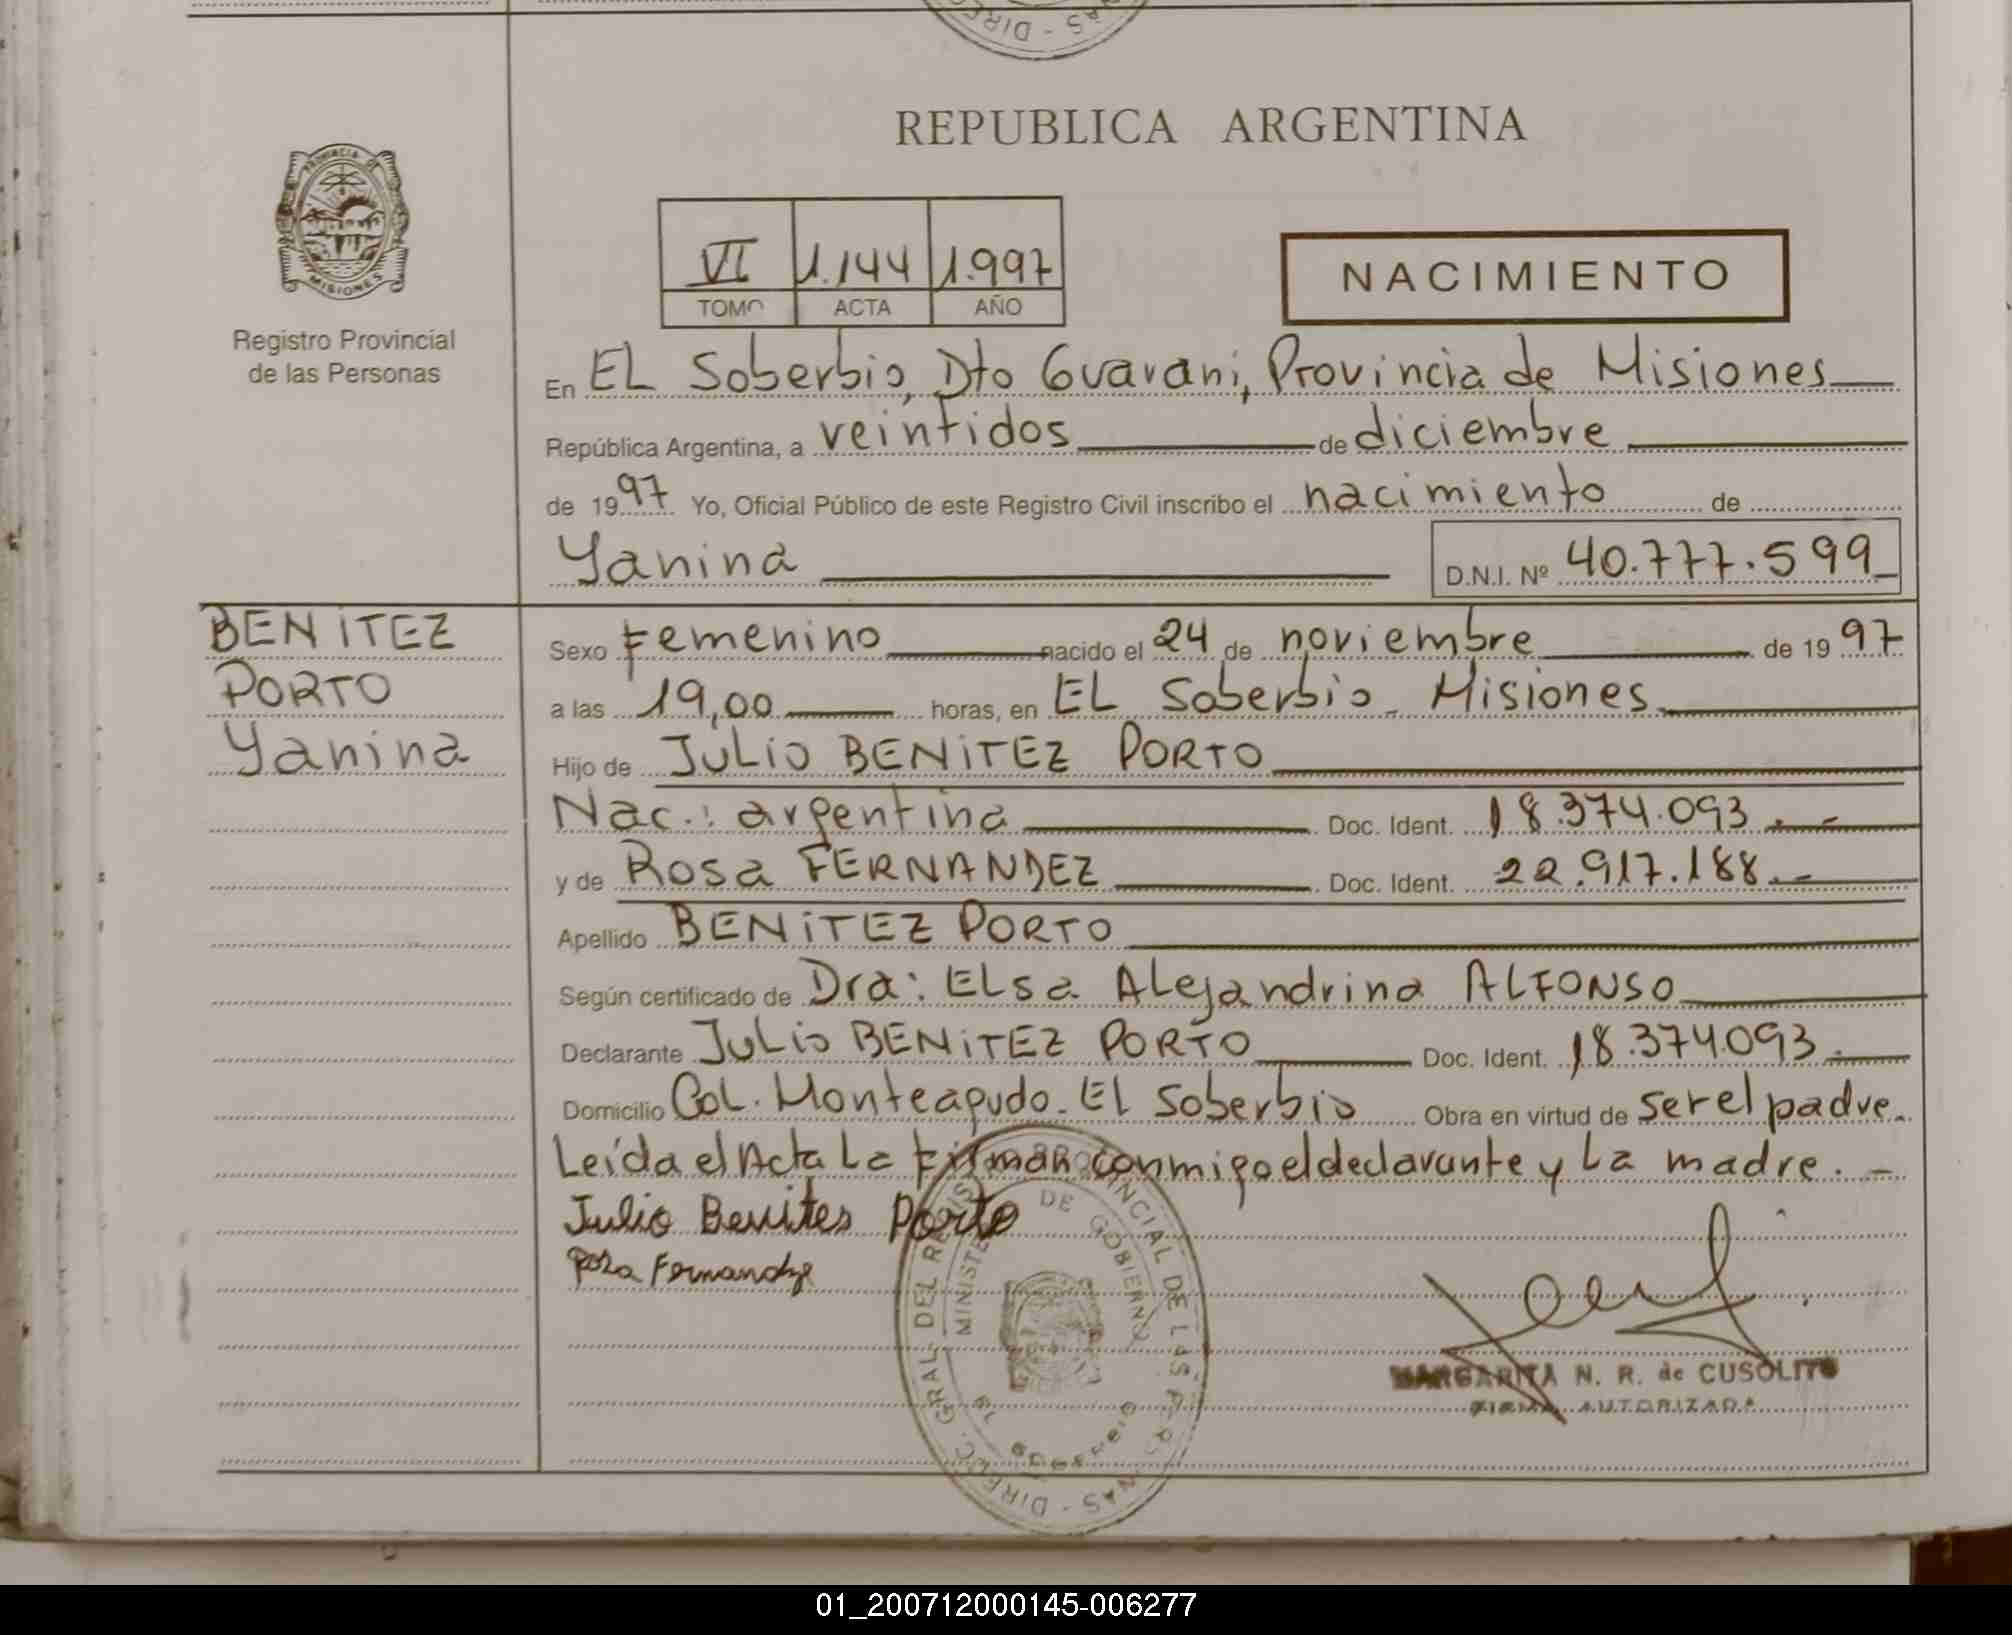 REPUBLICA ARGENTINA
PROVINCIA DE
MISIONES
Registro Provincial
de las Personas
VI 1.144 1.997
TOMO ACTA AÑO
NACIMIENTO
En EL Soberbio, Dto Guarani, Provincia de Misiones
República Argentina, a veintidos de diciembre
de 1997 Yo, Oficial Público de este Registro Civil inscribo el nacimiento de
Yanina D.N.I. Nº 40.777.599
BENITEZ
PORTO
Yanina
Sexo Femenino nacido el 24 de noviembre de 1997
a las 19,00 horas, en EL Soberbio - Misiones
Hijo de JULIO BENITEZ PORTO
Nac.: argentina Doc. Ident. 18.374.093.-
y de Rosa FERNANDEZ Doc. Ident. 22.917.188.-
Apellido BENITEZ PORTO
Según certificado de Dra: ELsa ALejandrina ALFONSO
Declarante JULio BENITEZ PORTO Doc. Ident. 18.374.093.
Domicilio CoL. Monteagudo - El Soberbio Obra en virtud de ser el padre.
Leída el Acta La firman conmigo el declarante y La madre. -
Julio Benites Porto
Rosa Fernandze
MARGARITA N. R. de CUSOLITO
FIRMA AUTORIZADA
DIREC. GRAL DEL REGISTRO PROVINCIAL DE LAS PERSONAS
MINISTERIO DE GOBIERNO
EL SOBERBIO
01_200712000145-006277